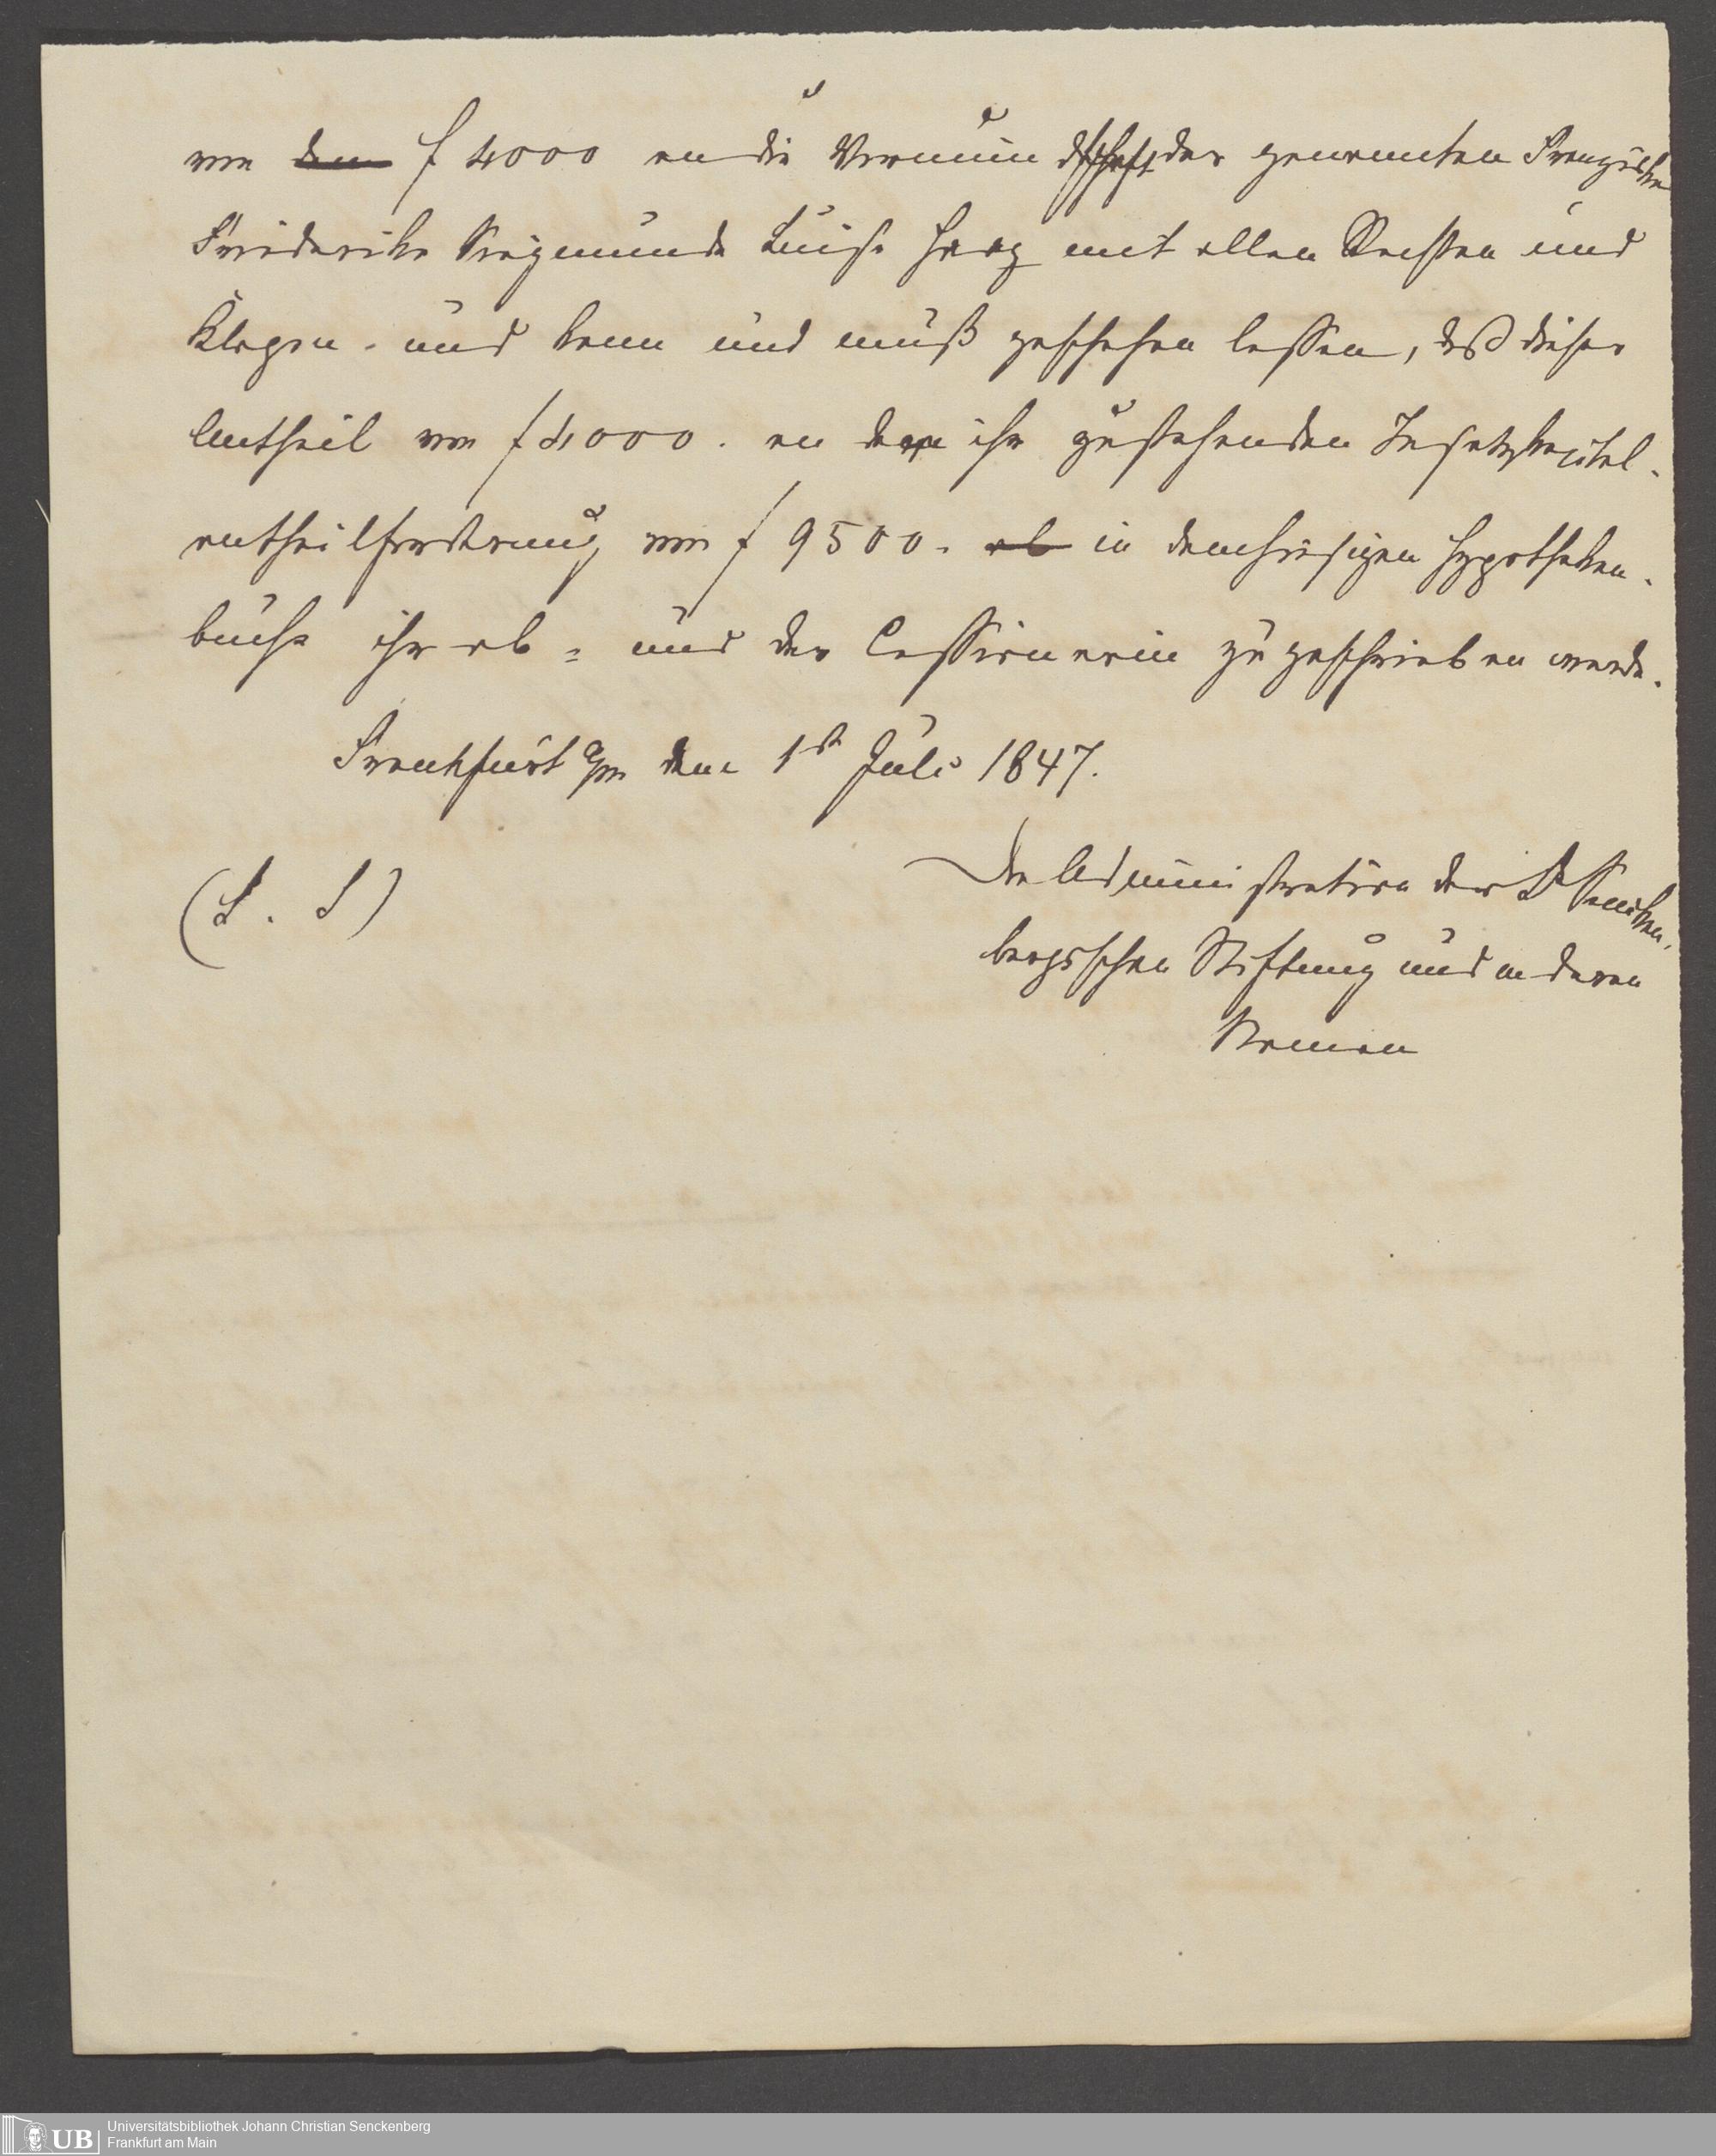 von den f 4000 an die Vormundschaft der genannten Franziska
Friederike Sigmunde Luise Haag mit allen Rechten und
Klagen - und kann und muß geschehen lassen, daß dieser
Antheil von f 4000. an dem ihr zustehenden Insatzkapital-
antheilforderung von f 9500. ab in dem hiesigen Hypotheken-
buche ihr ab = und der Cessionarin zugeschrieben werde.
Frankfurt a/m den 1st Juli 1847.
(L. S)
Die Administration der Dr Senken-
bergischen Stiftung und in deren
Namen
UB Universitätsbibliothek Johann Christian Senckenberg
Frankfurt am Main